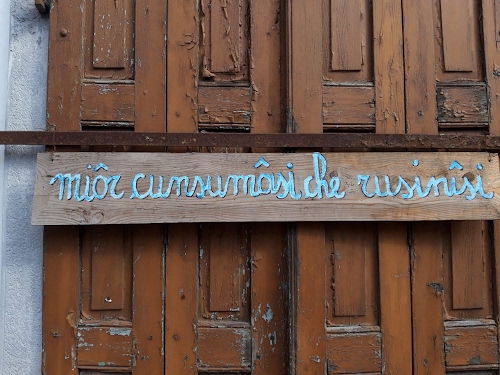 miôr cunsumâsi che rusinîsi